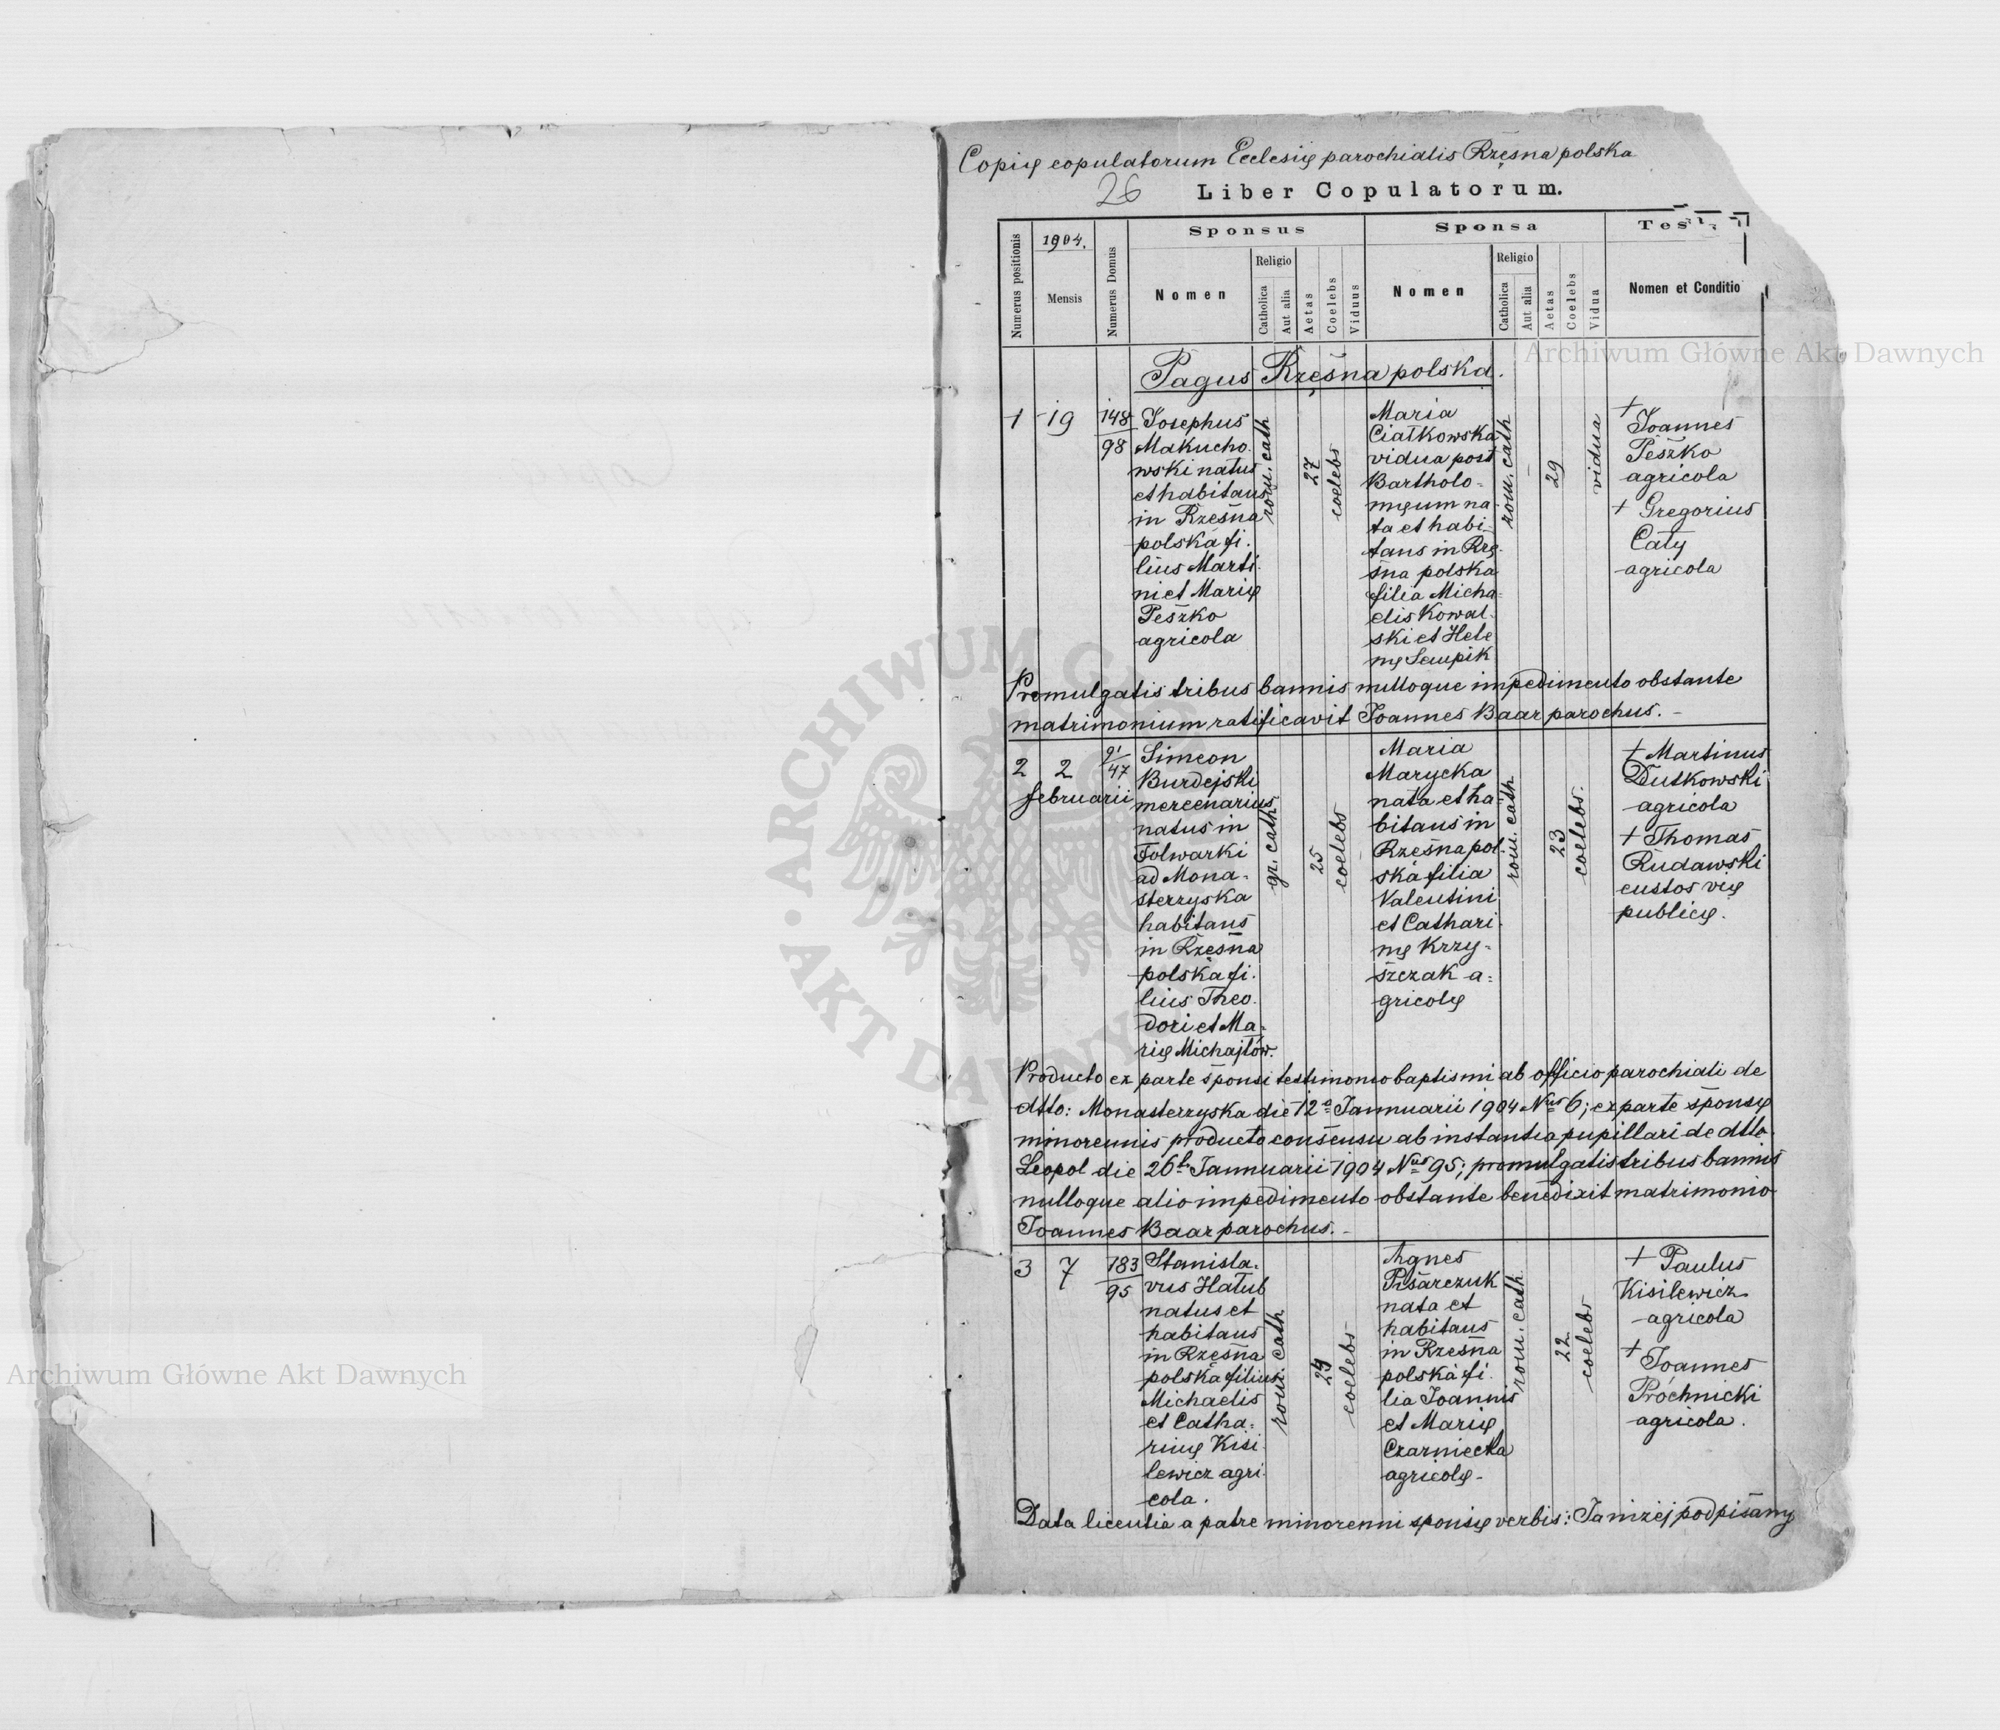 Copię copulatorum Ecclesię parochialis Rzęsna polska
26
Liber Copulatorum.
Numerus positionis
1904.
Mensis
Numerus Domus
Sponsus
Nomen
Religio
Catholica
Aut alia
Aetas
Coelebs
Viduus
Sponsa
Nomen
Religio
Catholica
Aut alia
Aetas
Coelebs
Vidua
Tes
Nomen et Conditio
Pagus Rzęsna polska.
1
19
148
98
Josephus
Makucho-
wski natus
et habitans
in Rzęsna
polska fi-
lius Marti-
ni et Marię
Peszko
agricola
rom. cath
27
coelebs
Maria
Ciałkowska
vidua post
Bartholo-
męum na-
ta et habi-
tans in Rzę-
sna polska
filia Micha-
elis Kowal-
ski et Hele
nę Scupik
rom. cath
29
vidua
+ Joannes
Peszko
agricola
+ Gregorius
Cały
agricola
Promulgatis tribus bannis nulloque impedimento obstante
matrimonium ratificavit Joannes Baar parochus. -
2
2
februarii
91
47
Simeon
Burdejski
mercenarius
natus in
Folwarki
ad Mona-
sterzyska
habitans
in Rzęsna
polska fi-
lius Theo-
dori et Ma-
rię Michajłów.
gr. cath
25
coelebs
Maria
Marycka
nata et ha
bitans in
Rzęsna pol-
ska filia
Valentini
et Cathari-
nę Krzy-
szczak a-
gricolę
rom. cath
23
coelebs.
+ Martinus
Dutkowski
agricola
+ Thomas
Rudawski
custos vię
publicę.
Producto ex parte sponsi testimonio baptismi ab officio parochiali de
dtto: Monasterzyska die 12a Jannuarii 1904 Nus 6; ex parte sponsę
minorennis producto consensu ab instantia pupillari de dtto.
Leopol die 26t Jannuarii 1904 Nus 95; promulgatis tribus bannis
nulloque alio impedimento obstante benedixit matrimonio
Joannes Baar parochus. -
3
7
183
95
Stanisla-
vus Hałub
natus et
habitans
in Rzęsna
polska filius
Michaelis
et Catha-
rinę Kisi-
lewicz agri-
cola.
rom. cath
24
coelebs
Agnes
Pisarczuk
nata et
habitans
in Rzęsna
polska fi-
lia Joannis
et Marię
Czarniecka
agricolę-
rom. cath
22
coelebs
+ Paulus
Kisilewicz
agricola
+ Joannes
Próchnicki
agricola.
Data licentia a patre minorenni sponsę verbis: Ja niżej podpisany
Archiwum Główne Akt Dawnych
Archiwum Główne Akt Dawnych
ARCHIWUM G
AKT DAWNY